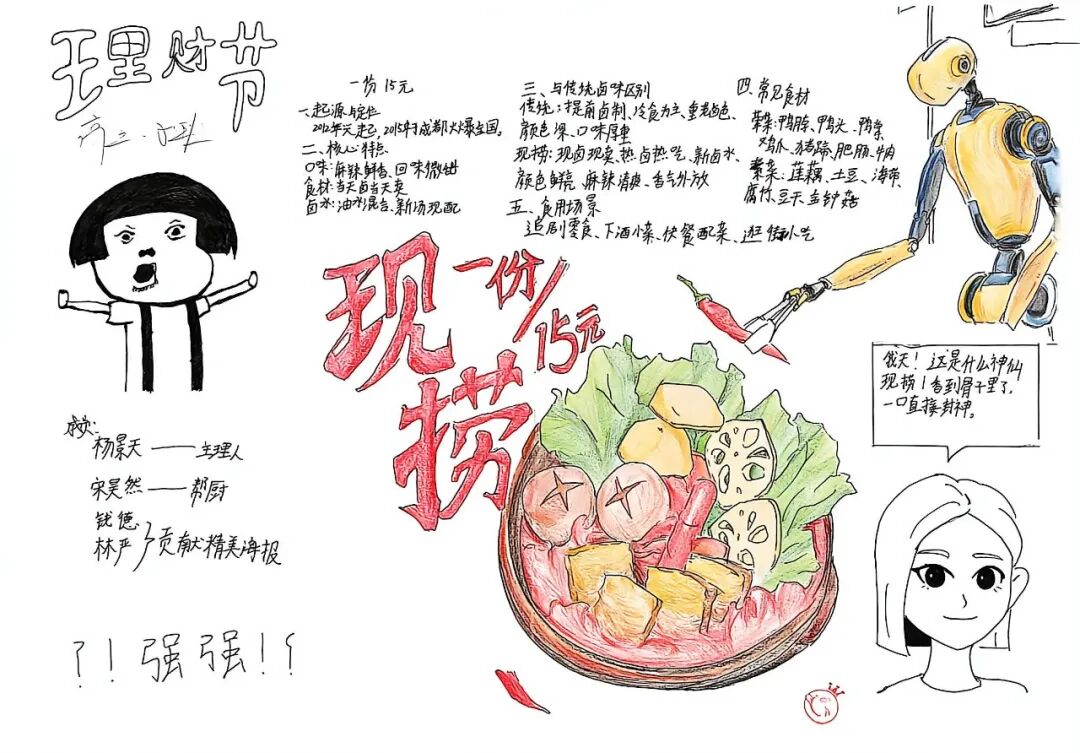 理财节
一份 15元
一、起源与定位
2012年元起,2015年于成都火爆全国。
二、核心特点
口味:麻辣鲜香、回味微甜
食材:当天卤当天卖
卤水:油水混合、新汤现配
三、与传统卤味区别
传统:提前卤制、冷食为主、重老卤色、
颜色深、口味厚重
现捞:现卤现卖、热卤热吃、新卤水、
颜色鲜亮、麻辣清爽、香气外放
四、常见食材
荤菜:鸭脖、鸭头、鸭掌
鸡爪、猪蹄、肥肠、牛肉
素菜:莲藕、土豆、海带、
腐竹、豆干、金针菇
五、食用场景
追剧零食、下酒小菜、快餐配菜、逛街小吃
现捞
一份/15元
我天!这是什么神仙
现捞!香到骨子里了,
一口直接封神。
杨景天——主理人
宋昊然——帮厨
钱德
林严 贡献精美海报
?!强强!?